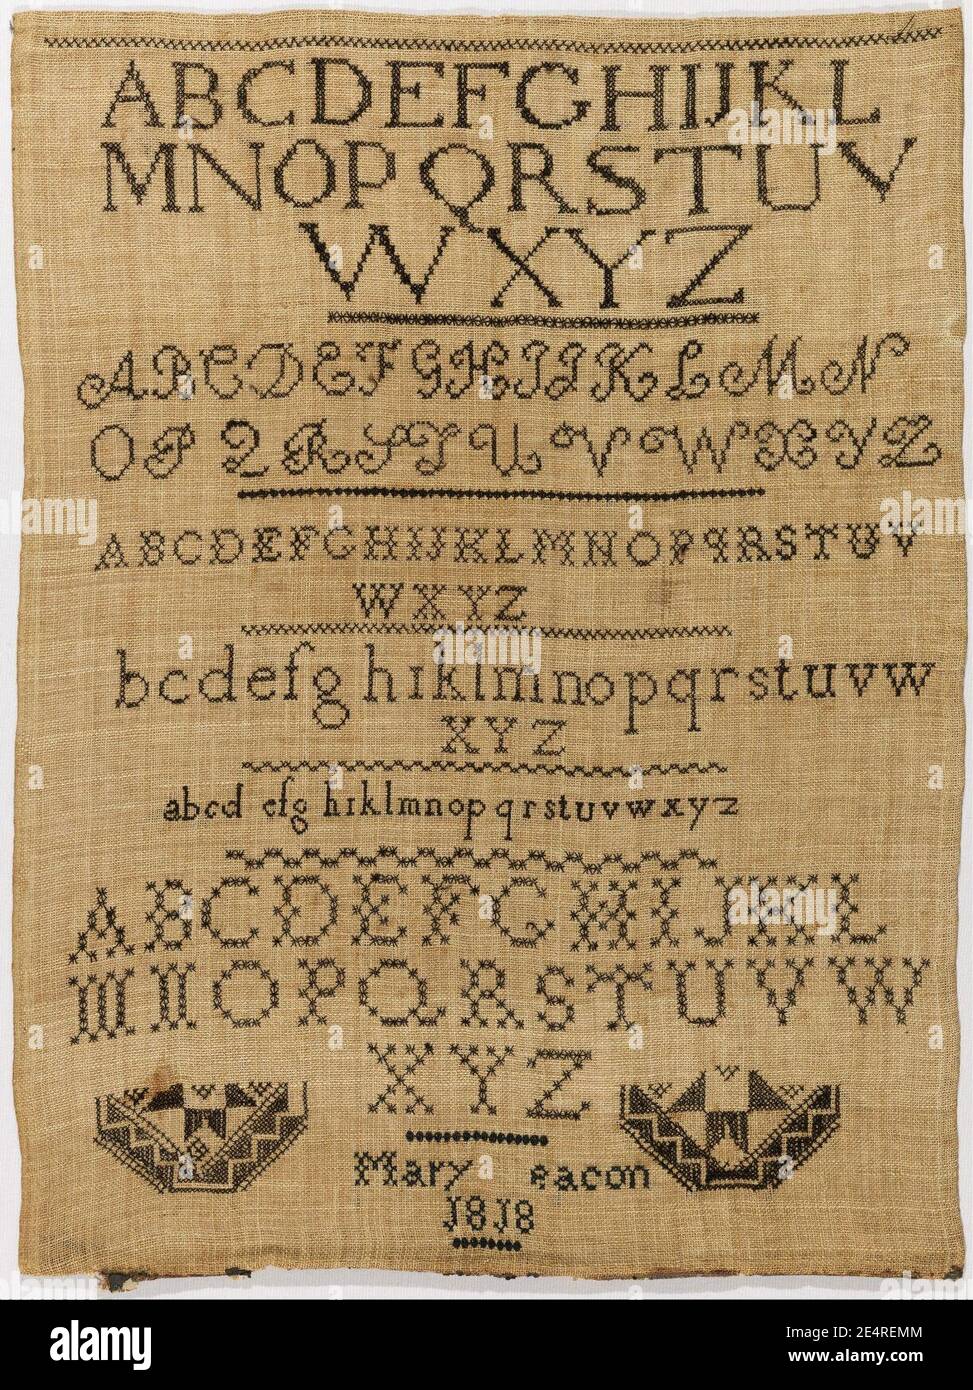 ABCDEFGHIJKL
MNOPQRSTUV
WXYZ
ABCDEFGHIJKLMN
OPQRSTUVWXYZ
ABCDEFGHIJKLMNOPQRSTUV
WXYZ
bcdefghıklmnopqrstuvw
XYZ
abcd efg hıklmnopqrstuvwxyz
ABCDEFGHIJKL
MNOPQRSTUVW
XYZ
Mary
1818
alamy
Image ID: 2E4REMM
www.alamy.com